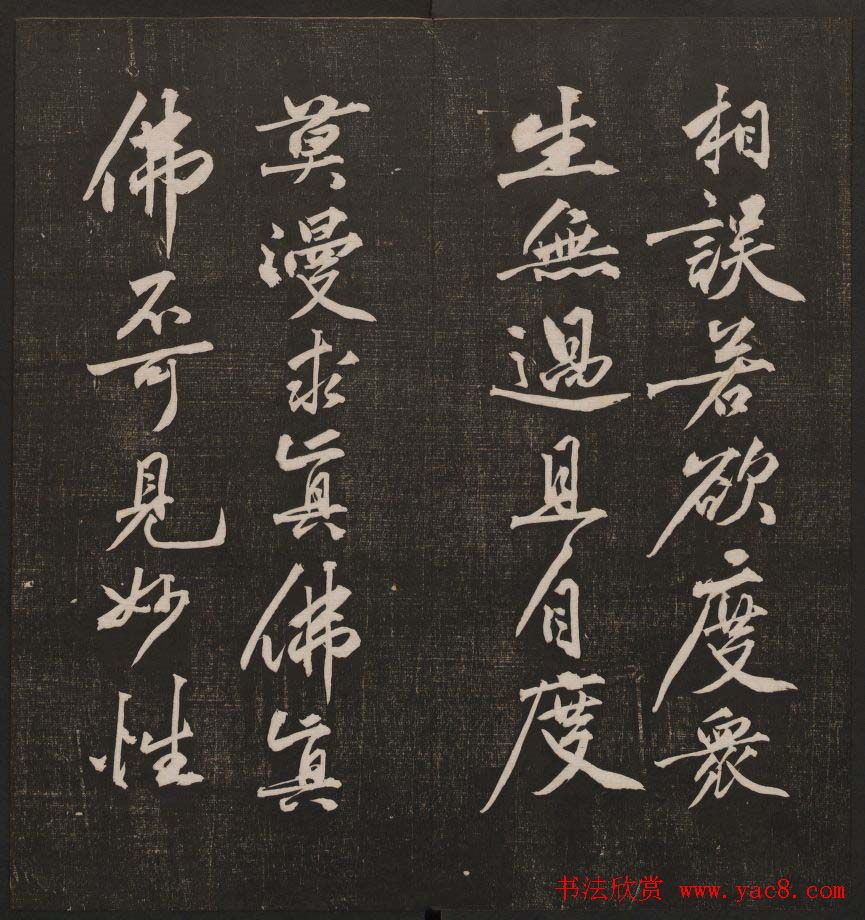 相誤若欲度衆
生無過且自度
莫漫求真佛真
佛不可見妙性
书法欣赏 www.yac8.com